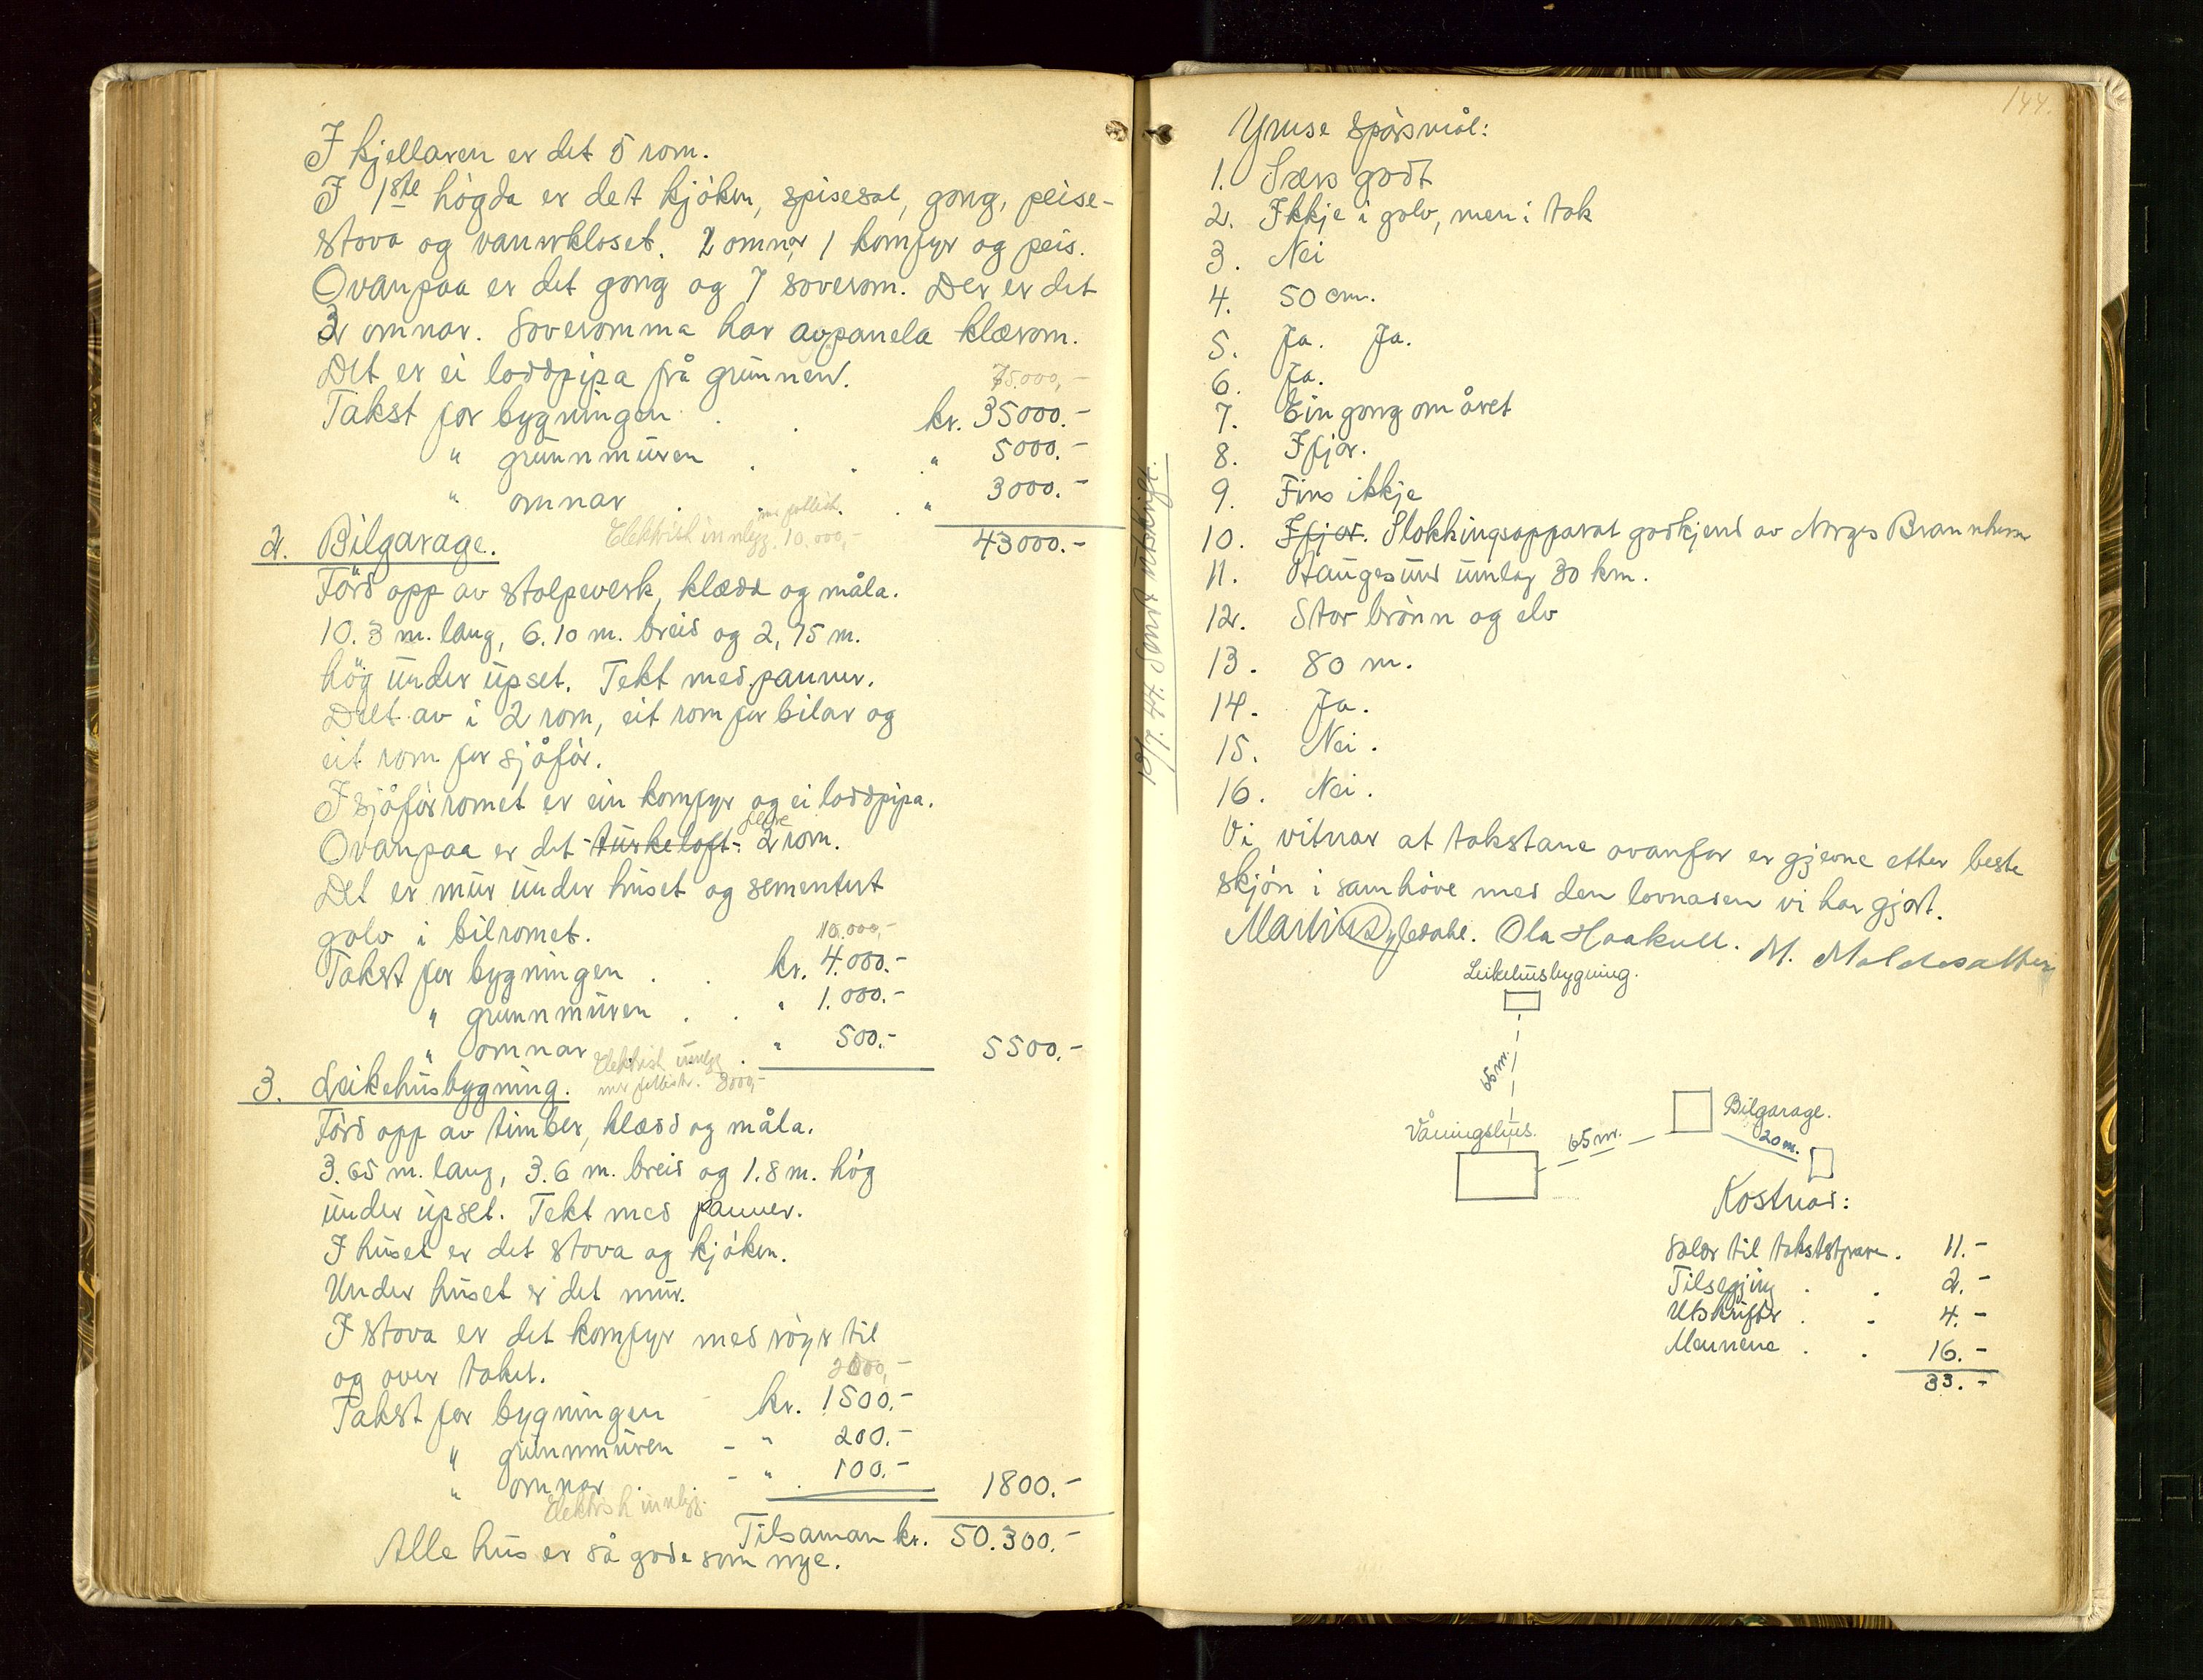 I kjellaren er det 5 rom.
I 1ste högda er det kjöken, spisesal, gong, peise-
stova og vannkloset. 2 omnar, 1 komfyr og peis.
Ovanpaa er det gong og 7 soverom. Der er det
3 omnar. Soveromma har avpanela klærom.
Det er ei loddpipa frå grunnen.
75.000,-
Takst for bygningen . . kr. 35000.-
" grunnmuren . . " 5000.-
" omnar . . " 3000.-
Elektrisk innlegg. 10.000,-
2. Bilgarage. 43000.-
Förd opp av stolpeverk, klædd og måla.
10.3 m. lang, 6.10 m. breid og 2,75 m.
hög under upset. Tekt med panner.
Delt av i 2 rom, eit rom for bilar og
eit rom for sjåför.
I sjåförromet er ein komfyr og ei loddpipa.
Ovanpaa er det turkeloft. 2 rom.
Det er mur under huset og sementert
golv i bilromet.
10.000,-
Takst for bygningen . . kr. 4.000.-
" grunnmuren . . " 1.000.-
" omnar . " 500.- 5500.-
Elektrisk innlegg
3000,-
3. Leikehusbygning.
Förd opp av timber, klædd og måla.
3.65 m. lang, 3.6 m. breid og 1.8 m. hög
under upset. Tekt med panner.
I huset er det stova og kjöken.
Under huset er det mur.
I stova er det komfyr med röyr til
og over taket.
2000,-
Takst for bygningen - kr. 1500.-
" grunnmuren - " 200.-
" omnar . - " 100.- 1800.-
Elektrisk innlegg.
Tilsaman kr. 50.300.-
Alle hus er så gode som nye.
19/7.44 Sendt utskrift.
144.
Ymse spörsmål:
1. Særs godt
2. Ikkje i golv, men i tak
3. Nei
4. 50 cm.
5. Ja. Ja.
6. Ja.
7. Ein gong om året
8. I fjor.
9. Fins ikkje
10. I fjor. Slokkingsapparat godkjend av Norges Brannkem
11. Haugesund umlag 30 km.
12. Stor brönn og elv
13. 80 m.
14. Ja.
15. Nei.
16. Nei.
Vi vitnar at takstane ovanfor er gjevne etter beste
skjön i samhöve med den lovnaden vi har gjort.
Ola Haakull.
Leikehusbygning.
65 m.
Bilgarage.
Våningshus. 65 m. 20 m.
Kostnad:
Salær til takststyrare. 11.-
Tilsegjing . . 2.-
Utskrifter . . 4.-
Mennene . . 16.-
33.-